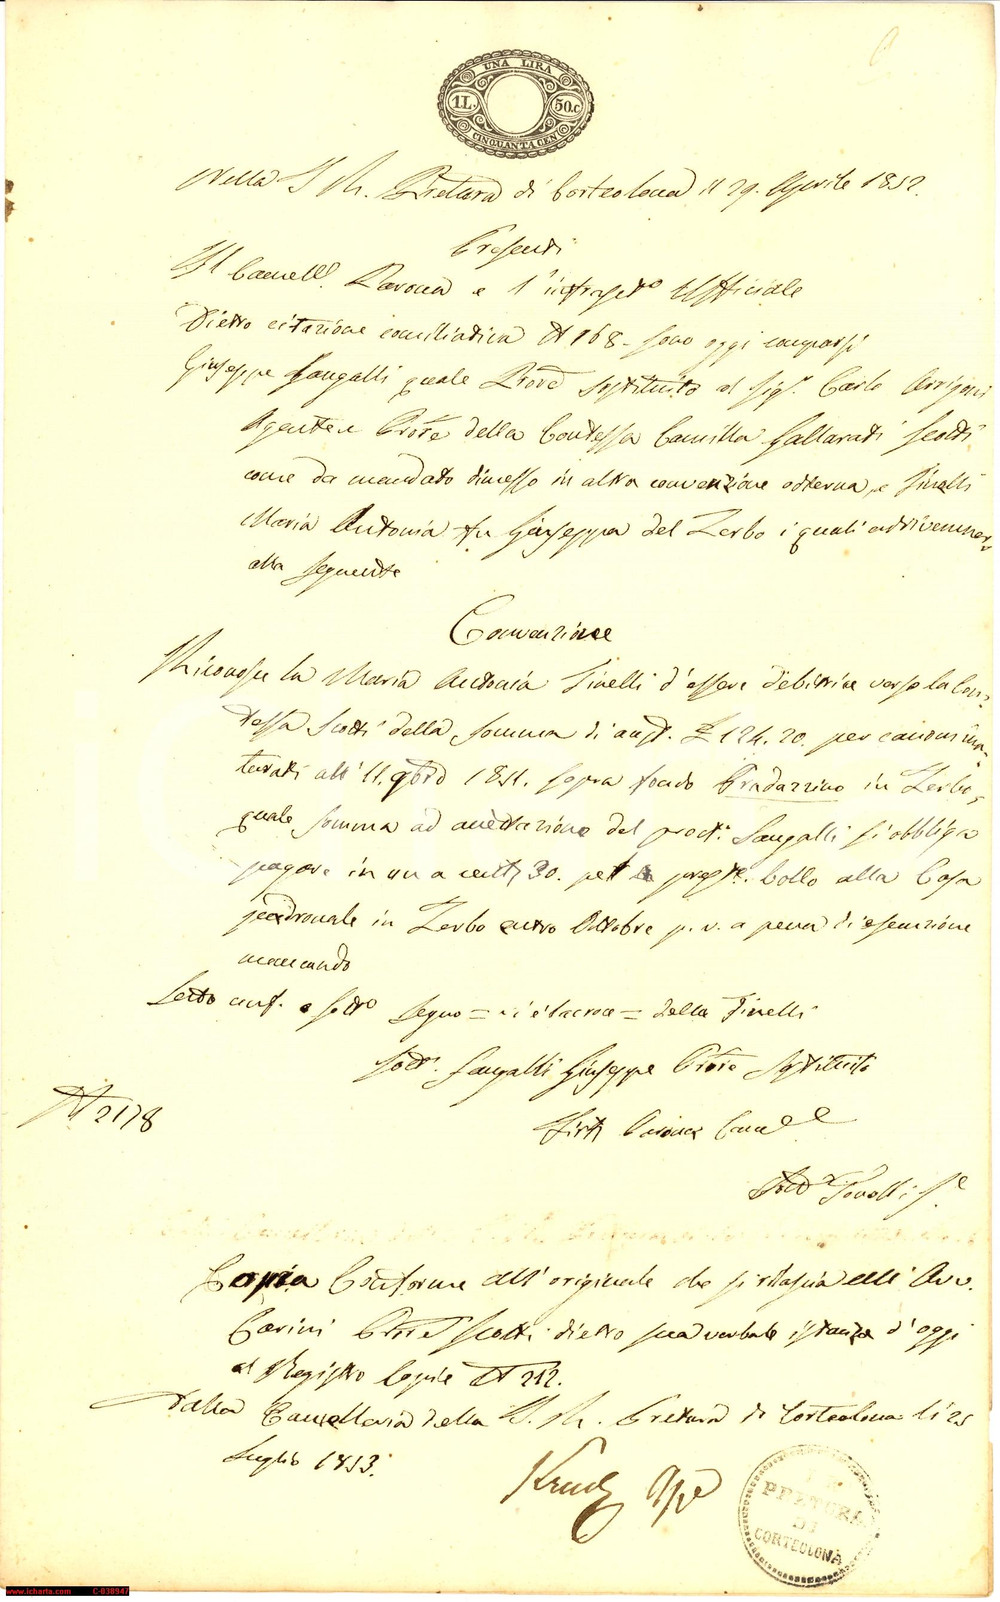 UNA LIRA
1L. 50.c
CINQUANTA CEN
Nella I. R. Pretura di Corteolona il 29. Aprile 1852.
Presenti
Il Cancell.e Parona e l'infrascto Ufficiale
Dietro citazione conciliativa N 168 - sono oggi comparsi
Giuseppe Sangalli quale Procre sostituito al sigr. Carlo Arrigoni
Agente e Procre della Contessa Camilla Gallarati Scotti
come da mandato dimesso in altra convenzione odierna, e Finelli
Maria Antonia fu Giuseppe del Zerbo i quali addivennero
alla seguente
Convenzione
Riconosce la Maria Antonia Finelli d'essere debitrice verso la Con-
tessa Scotti della somma di aust. £ 124. 20. per canoni ma-
turati all' 11. 9bre 1851. sopra fondo Pradazzino in Zerbo,
quale somma ad accettazione del proct. Sangalli si obbliga
pagare in un a cent. 30. pel prest. bollo alla Casa
padronale in Zerbo entro Ottobre p. v. a pena di esecuzione
mancando
Letto conf. e sotto Segno = di croce = della Finelli
Sott. Sangalli Giuseppe Procre Sostituito
Firt Parona Canc.e
Sott
N 2178
Copia Conforme all'originale che si rilascia all' Avv.
Carini Procre Scotti dietro sua verbale istanza d'oggi
al Registro Copie N 212.
Dalla Cancelleria della I. R. Pretura di Corteolona li 25
Luglio 1853.
PRETURA
DI
CORTEOLONA
www.icharta.com C-038947